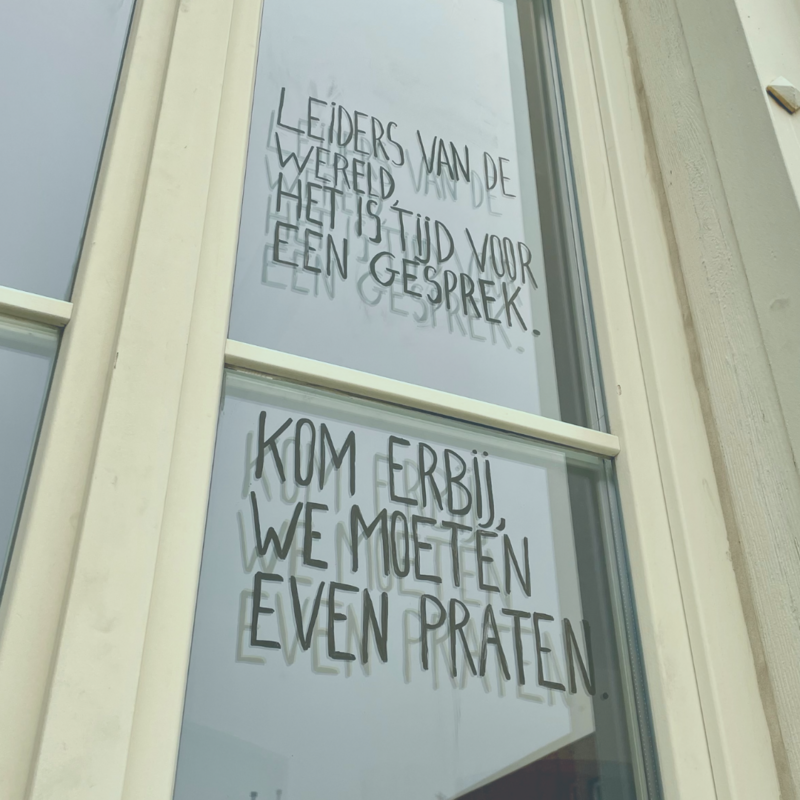 LEIDERS VAN DE
WERELD,
HET IS TIJD VOOR
EEN GESPREK.
KOM ERBIJ,
WE MOETEN
EVEN PRATEN.